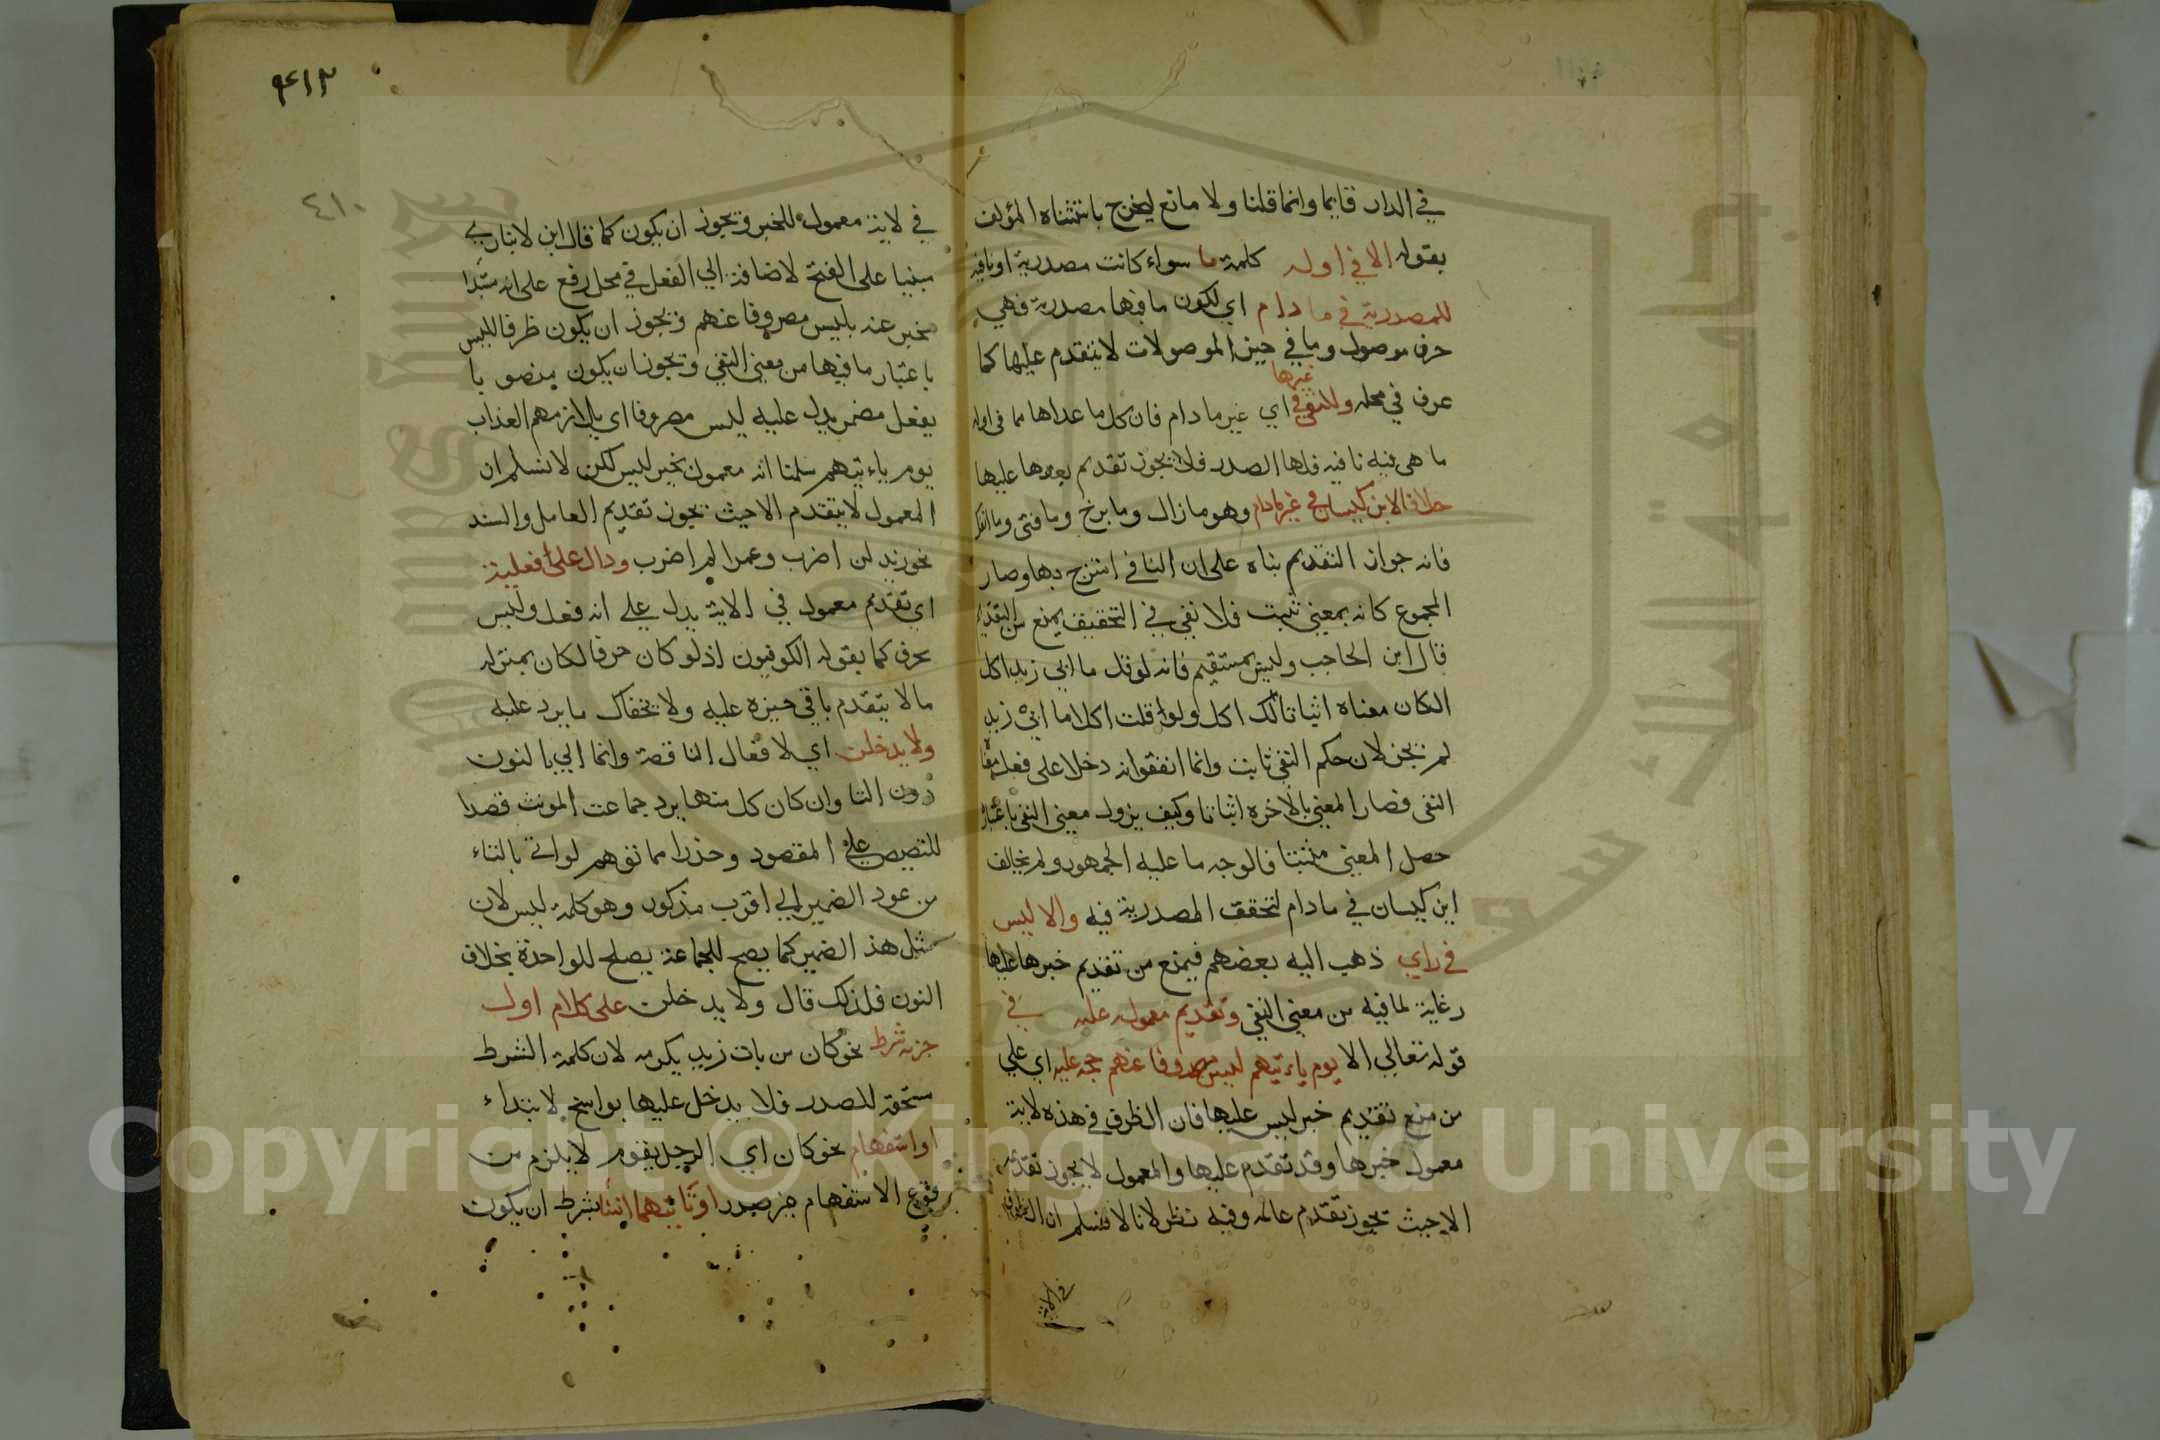 في الدار قايما وانما قلنا ولا مانع ليخرج باستثناه المؤلف
بقوله الا في اوله كلمة ما سواء كانت مصدرية او نافية
للمصدرية في ما دام اي لكون ما فيها مصدرية فهي
حرف موصول وما في حيز الموصولات لا يتقدم عليها كما
عرف في محله وللنفي في غيرها اي غير ما دام فان كل ما عداها مما في اوله
ما هي فيه نافيه فلها الصدر فلا يجوز تقديم عليها
خلافا لابن كيسان في غير ما دام وهو ما زال وما برح وما فتئ وما انفك
فانه جواز التقديم بناه على ان النافي امتزج بها وصار
المجموع كانه بمعنى ثبت فلا نفي في التحقيق يمنع من التقديم
قال ابن الحاجب وليس بمستقيم فانه لو قلت ما ابي زيد اكل
لكان معناه اثباتا لك اكل ولو قلت اكلا ما ابي زيد
لم يجز لان حكم النفي ثابت وانما اتفق انه دخلا على فعل معناه
النفي فصار المعنى بالاخره اثباتا وكيف يزول معنى النفي باعتبار
حصل المعنى مثبتا فالوجه ما عليه الجمهور ولم يخالف
ابن كيسان في ما دام لتحقق المصدرية فيه والا ليس
في راي ذهب اليه بعضهم فيمنع من تقديم خبرها عليها
رغاية لما فيه من معنى النفي وتقديم معموله عليه في
قوله تعالى الا يوم ياءتيهم ليس مصروفا عنهم حجه عليه اي على
من منع تقديم خبر ليس عليها فان الظرف في هذه لاية
معمول خبرها وقد تقدم عليها والمعمول لا يجوز تقديمه
الا حيث يجوز تقدم عامله وفيه نظر لانا لا نسلم ان الظرف
في الاية
٩٤١٢
٤١٠
في لاية معمول للخبر ويجوز ان يكون كما قال ابن لانباري
مبنيا على الفتح لاضافة الي الفعل في محل رفع على انه مبتدا
مخبر عنه بليس مصروفا عنهم ويجوز ان يكون ظرفا لليس
باعتبار ما فيها من معنى النفي ويجوز ان يكون منصوبا
بفعل مضمر يدل عليه ليس مصروفا اي يلازمهم العذاب
يوم ياءتيهم سلمنا انه معمول بخبر ليس لكن لا نسلم ان
المعمول لا يتقدم الا حيث يجوز تقديم العامل والسند
نحو زيد لن اضرب وعمرا لم اضرب ودال على فعلية
اي تقديم معموله في الاية يدل على انه فعل وليس
بحرف كما يقوله الكوفيون اذ لو كان حرفا لكان بمنزله
ما لا يتقدم باقي حيزه عليه ولا يخفاك ما يرد عليه
ولا يدخلن اي لافعال الناقصة وانما اتي بالنون
دون التا وان كان كل منهما يرد جماعت المونث قصدا
للتنصيص على المقصود وحذرا مما توهم لو اتى بالتاء
من عود الضمير الي اقرب مذكور وهو كلمة ليس لان
مثل هذ الضمير كما يصح للجماعة يصلح للواحدة بخلاف
النون فلذلك قال ولا يدخلن على كلام اول
جزئه شرط نحو كان من بات زيد يكرمه لان كلمة الشرط
مستحقه للصدر فلا يدخل عليها نواسخ لابتداء
او استفهام نحو كان اي الرجل يقوم لا يلزم من
وقوع الاستفهام غير صدر او ثانيهما انشا بشرط ان يكون
Copyright © King Saud University